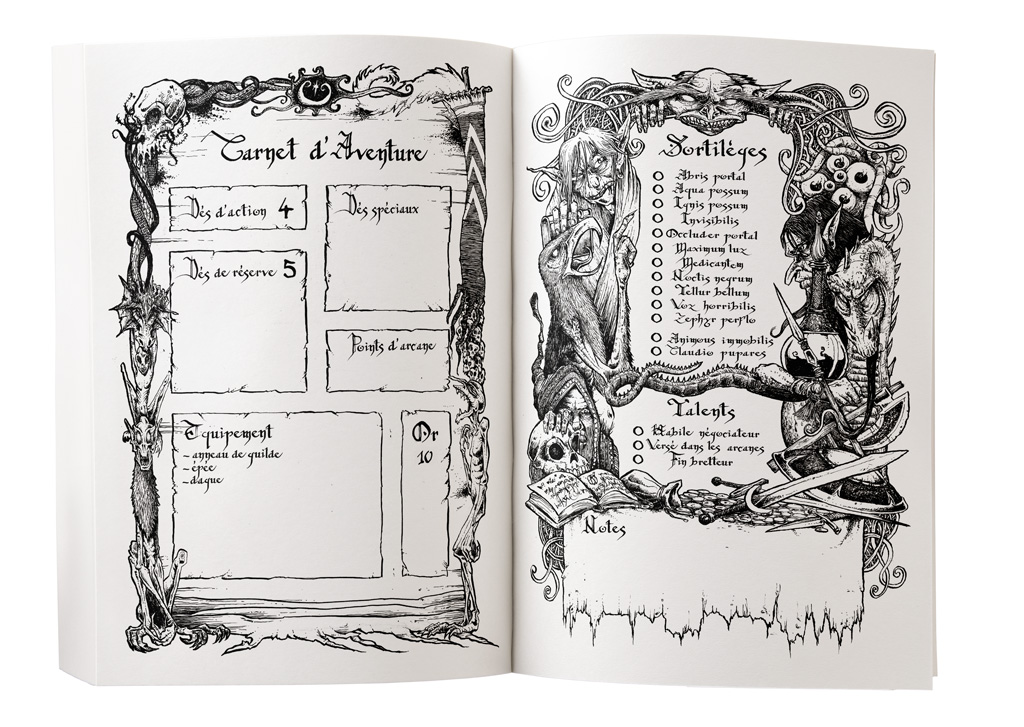 Carnet d'Aventure
Dés d'action 4
Dés spéciaux
Dés de réserve 5
Points d'arcane
Equipement
- anneau de guilde
- épée
- dague
Or
10
Sortilèges
Abris portal
Aqua possum
Ignis possum
Invisibilis
Occluder portal
Maximum lux
Medicantem
Noctis negrum
Tellur bellum
Vox horribilis
Zephyr perflo
Animous immobilis
Claudio pupares
Talents
Habile négociateur
Versé dans les arcanes
Fin bretteur
Notes